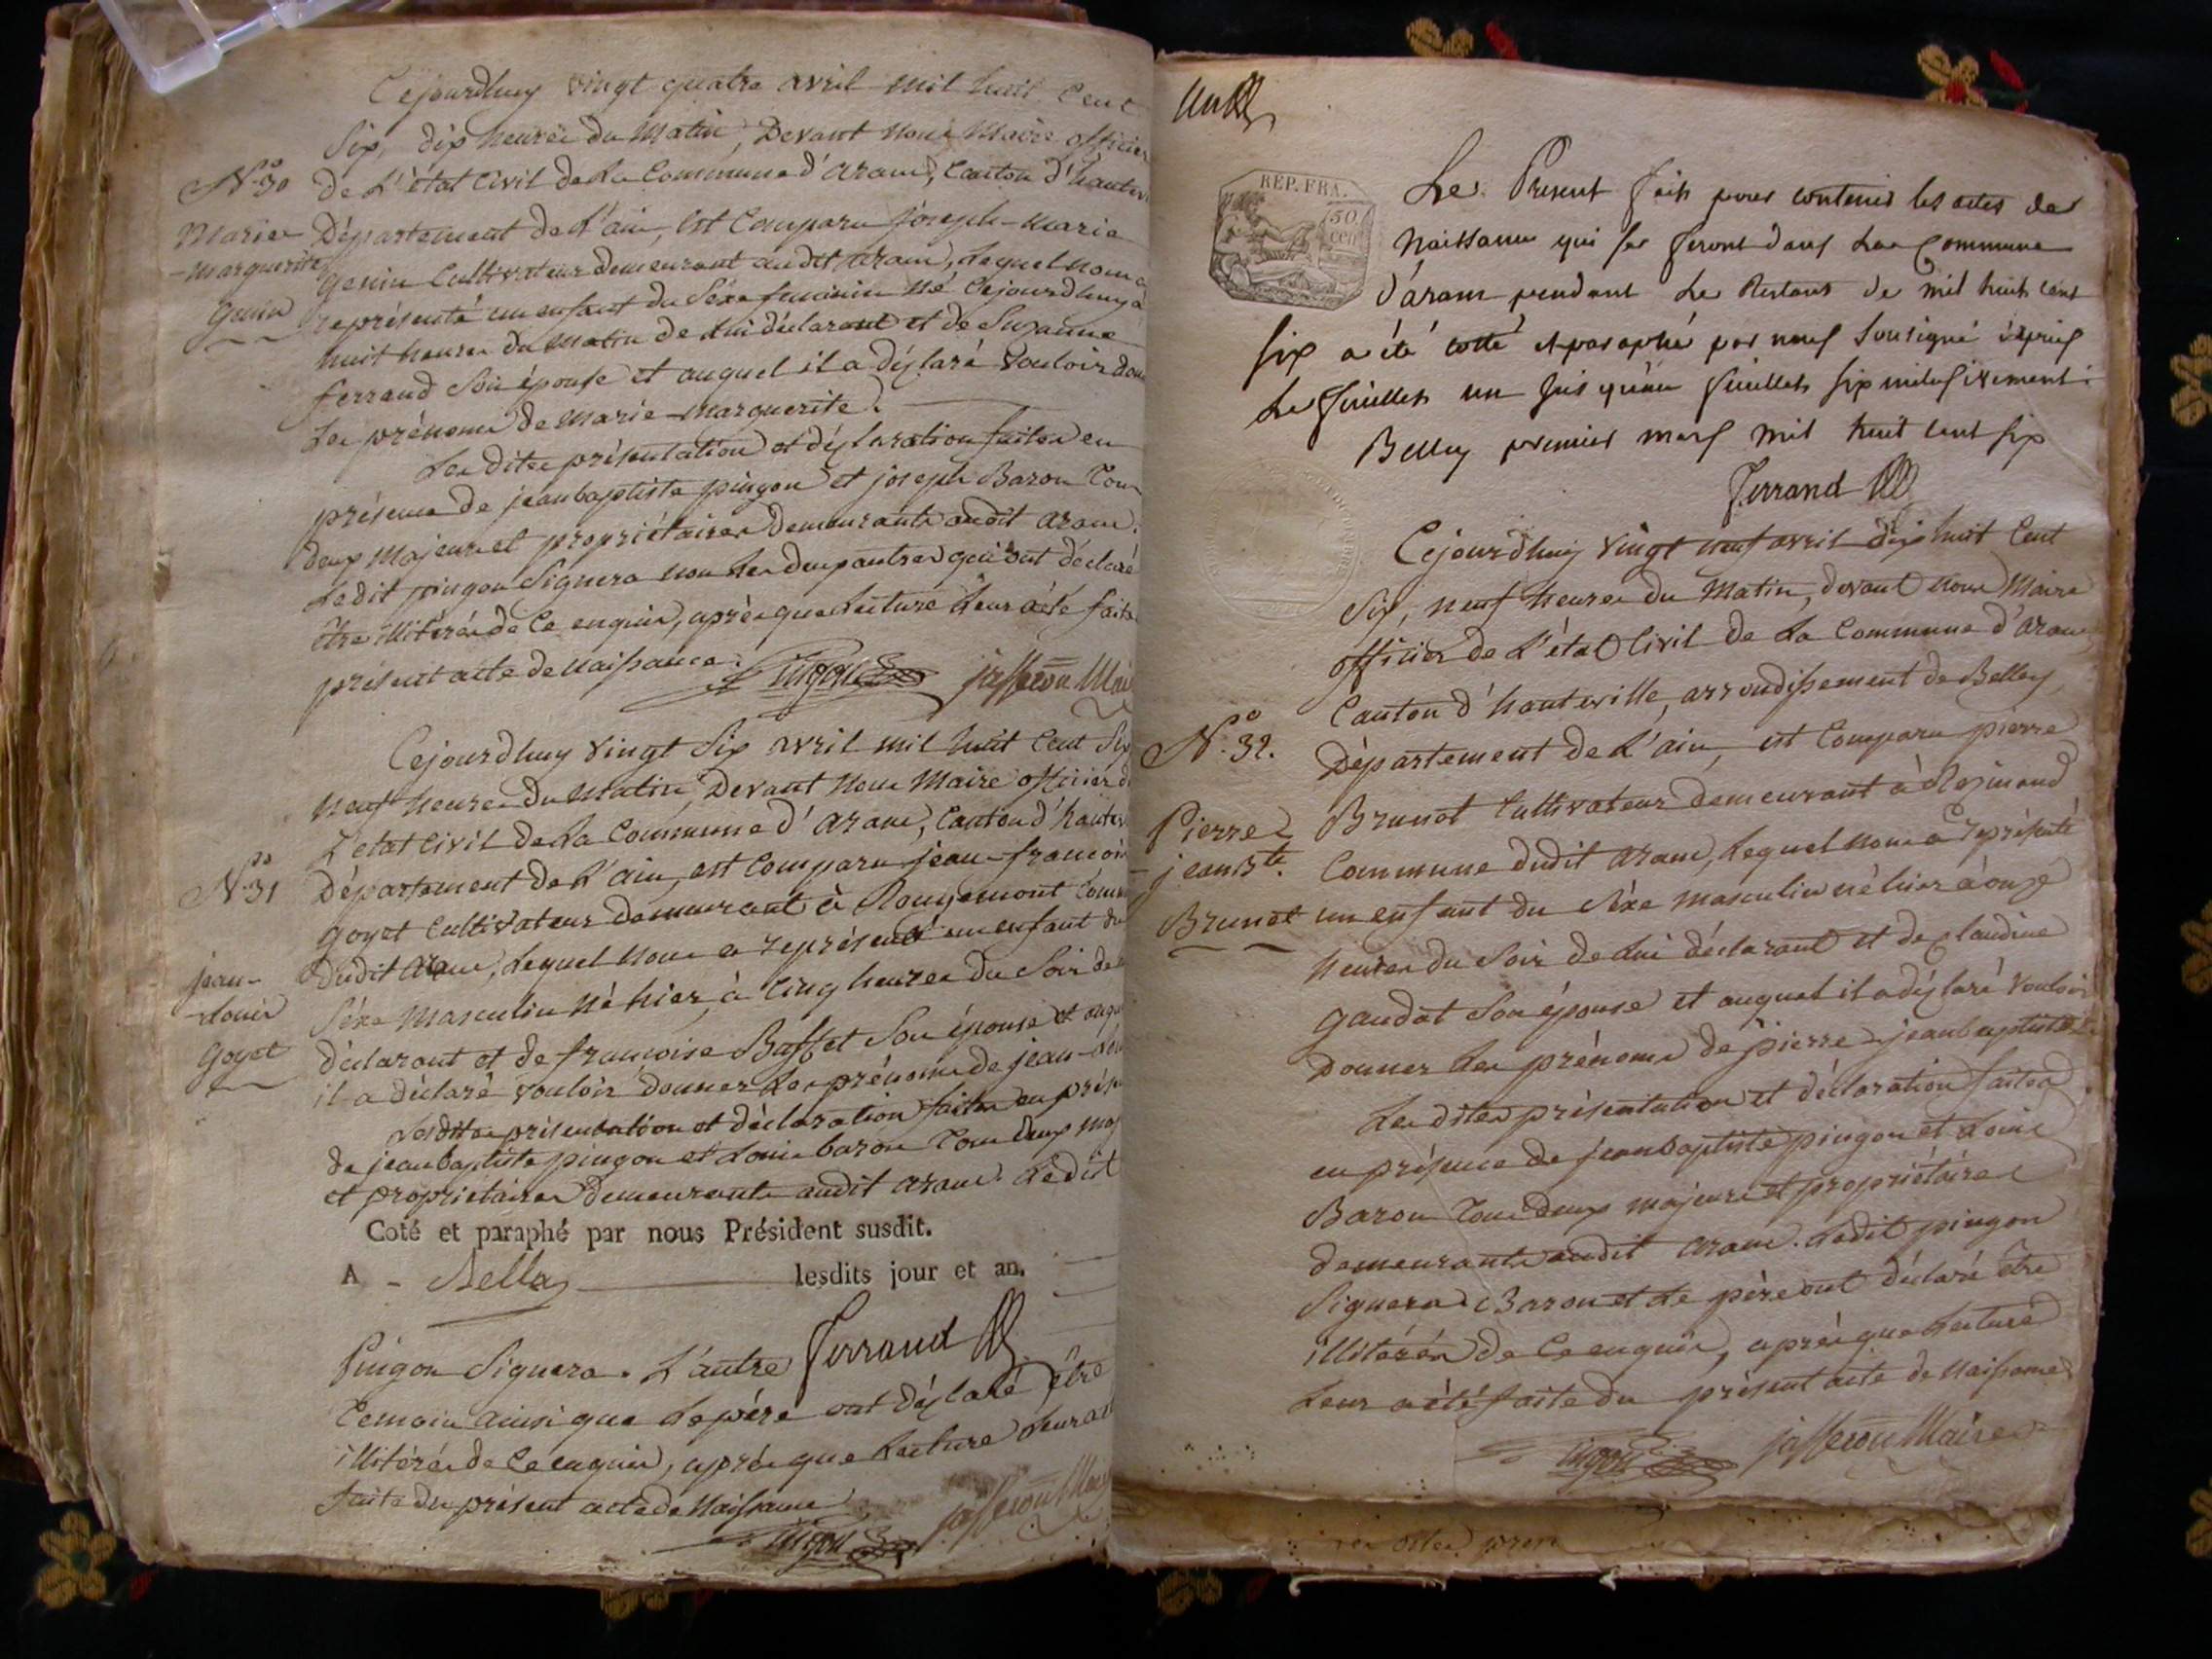 Cejourdhuy vingt quatre avril mil huit Cent
Six, dix heures du Matin, Devant nous Maire officier
N.o 30
de L'état Civil de La Commune d'aranc, Canton d'hautev
Marie
-Marguerite
genin
Département de L'ain, est Comparu joseph-marie
genin Cultivateur demeurant audit aranc, Lequel nous a
représenté un enfant du Séxe feminin né Cejourdhuy à
huit heures du Matin de Lui déclarant et de Suzanne
ferrand Son épouse et auquel il a déclaré Vouloir don
Les prénoms de Marie-Marguerite.
Les dites présentation et déclaration faites en
présence de jeanbaptiste pingon et joseph Baron Tous
deux Majeurs et propriétaires Demeurants audit aranc.
Ledit pingon Signera non Les deux autres qui ont déclaré
être illitérés de Ce enquis, après que Lecture Leur a été faite
présent acte de Naissance.
Pingon jasseron Mai
Cejourdhuy Vingt Six avril mil huit Cent Six
Neuf heures du Matin, Devant Nous Maire officier d
L'etat Civil de La Commune d'aranc, Canton d'hautev
N.o 31
Département de L'ain, est Comparu jean-françois
goyet Cultivateur demeurant à Rougemont Comm
jean-
-Louis
goyet
dudit aranc, Lequel nous a représenté un enfant du
Séxe Masculin Né hier à Cinq heures du Soir de
déclarant et de françoise Buffet Son épouse et auqu
il a déclaré vouloir donner Les prénoms de jean-Lou
Lesdites présentation et déclaration faites en prés
de jeanbaptiste pingon et Louis baron Tous deux maj
et propriétaires demeurants audit aranc. Ledit
Coté et paraphé par nous Président susdit.
A - Belley lesdits jour et an.
Ferrand
Pingon Signera. L'autre
Temoin ainsi que Le père ont déclaré être
illitérés de Ce enquis, après que Lecture Leur a
faite du présent acte de Naissance
Pingon jasseron Mai
un
REP. FRA.
50
cen
Le Present fait pour contenir les actes de
Naissance qui se feront dans La Commune
d'aranc pendant Le Restant de mil huit cent
six a été cotté et paraphé par nous Soussigné depuis
Le feuillet un jusqu'au feuillet six inclusivement.
Belley premier mars mil huit cent six
Ferrand
Cejourdhuy Vingt neuf avril dix huit Cent
Six, neuf heures du Matin, devant nous Maire
officier de L'état Civil de La Commune d'aranc
Canton d'hauteville, arrondissement de Belley
N.o 32.
Département de L'ain, est Comparu pierre
Pierre
-jeanBte.
Brunet
Brunet Cultivateur demeurant à Résinand
Commune dudit aranc, Lequel nous a représenté
un enfant du Séxe Masculin né hier à onze
heures du Soir de Lui déclarant et de Claudine
gaudet Son épouse et auquel il a déclaré Vouloir
donner Les prénoms de pierre-jeanbaptiste
Les dites présentation et déclaration faites
en présence de jeanbaptiste pingon et Louis
Baron Tous deux majeurs et propriétaires
demeurants audit aranc. Ledit pingon
Signera. Baron et Le père ont déclaré être
illitérés de Ce enquis, après que Lecture
Leur a été faite du présent acte de Naissance
Pingon jasseron Maire